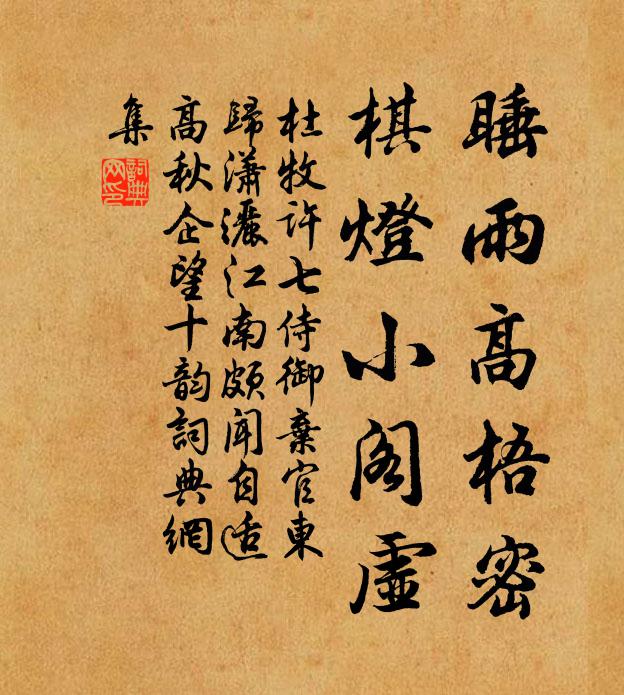 睡雨高梧密
棋燈小阁虛
杜牧許七侍御棄官東
歸瀟灑江南頗聞自适
高秋企望十韵詞典網
集
詞典
网印